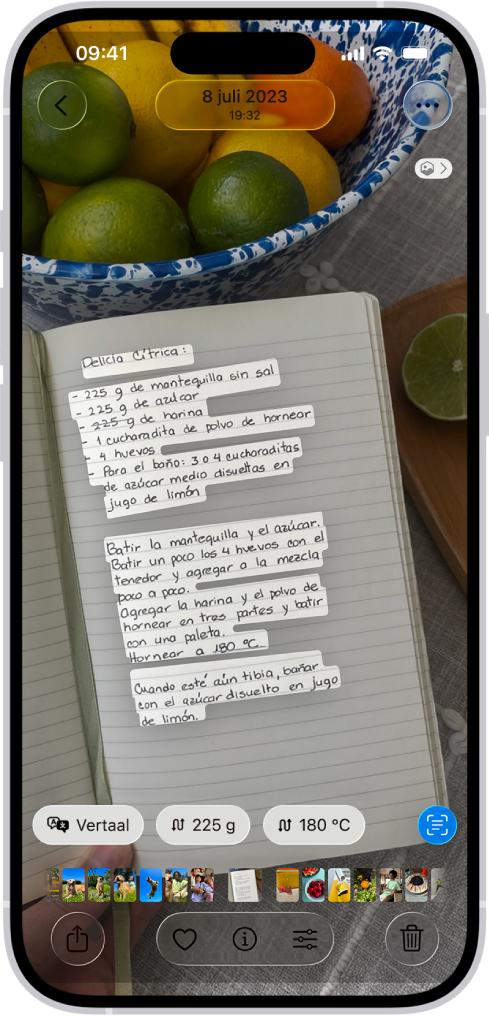 09:41
8 juli 2023
19:32
Delicia Cítrica:
- 225 g de mantequilla sin sal
- 225 g de azúcar
- 225 g de harina
- 1 cucharadita de polvo de hornear
- 4 huevos
- Para el baño: 3 o 4 cucharaditas
de azúcar medio disueltas en
jugo de limón
Batir la mantequilla y el azúcar.
Batir un poco los 4 huevos con el
tenedor y agregar a la mezcla
poco a poco.
Agregar la harina y el polvo de
hornear en tres partes y batir
con una paleta.
Hornear a 180 °C.
Cuando esté aún tibia, bañar
con el azúcar disuelto en jugo
de limón.
Vertaal
225 g
180 °C